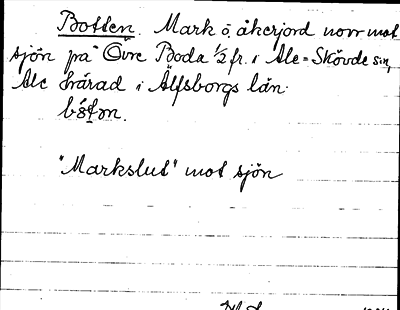 Botten. Mark o. åkerjord norr mot
sjön på Övre Boda 1/2 fr. i Ale-Skövde sn,
Ale härad i Älfsborgs län.
"Markslut" mot sjön